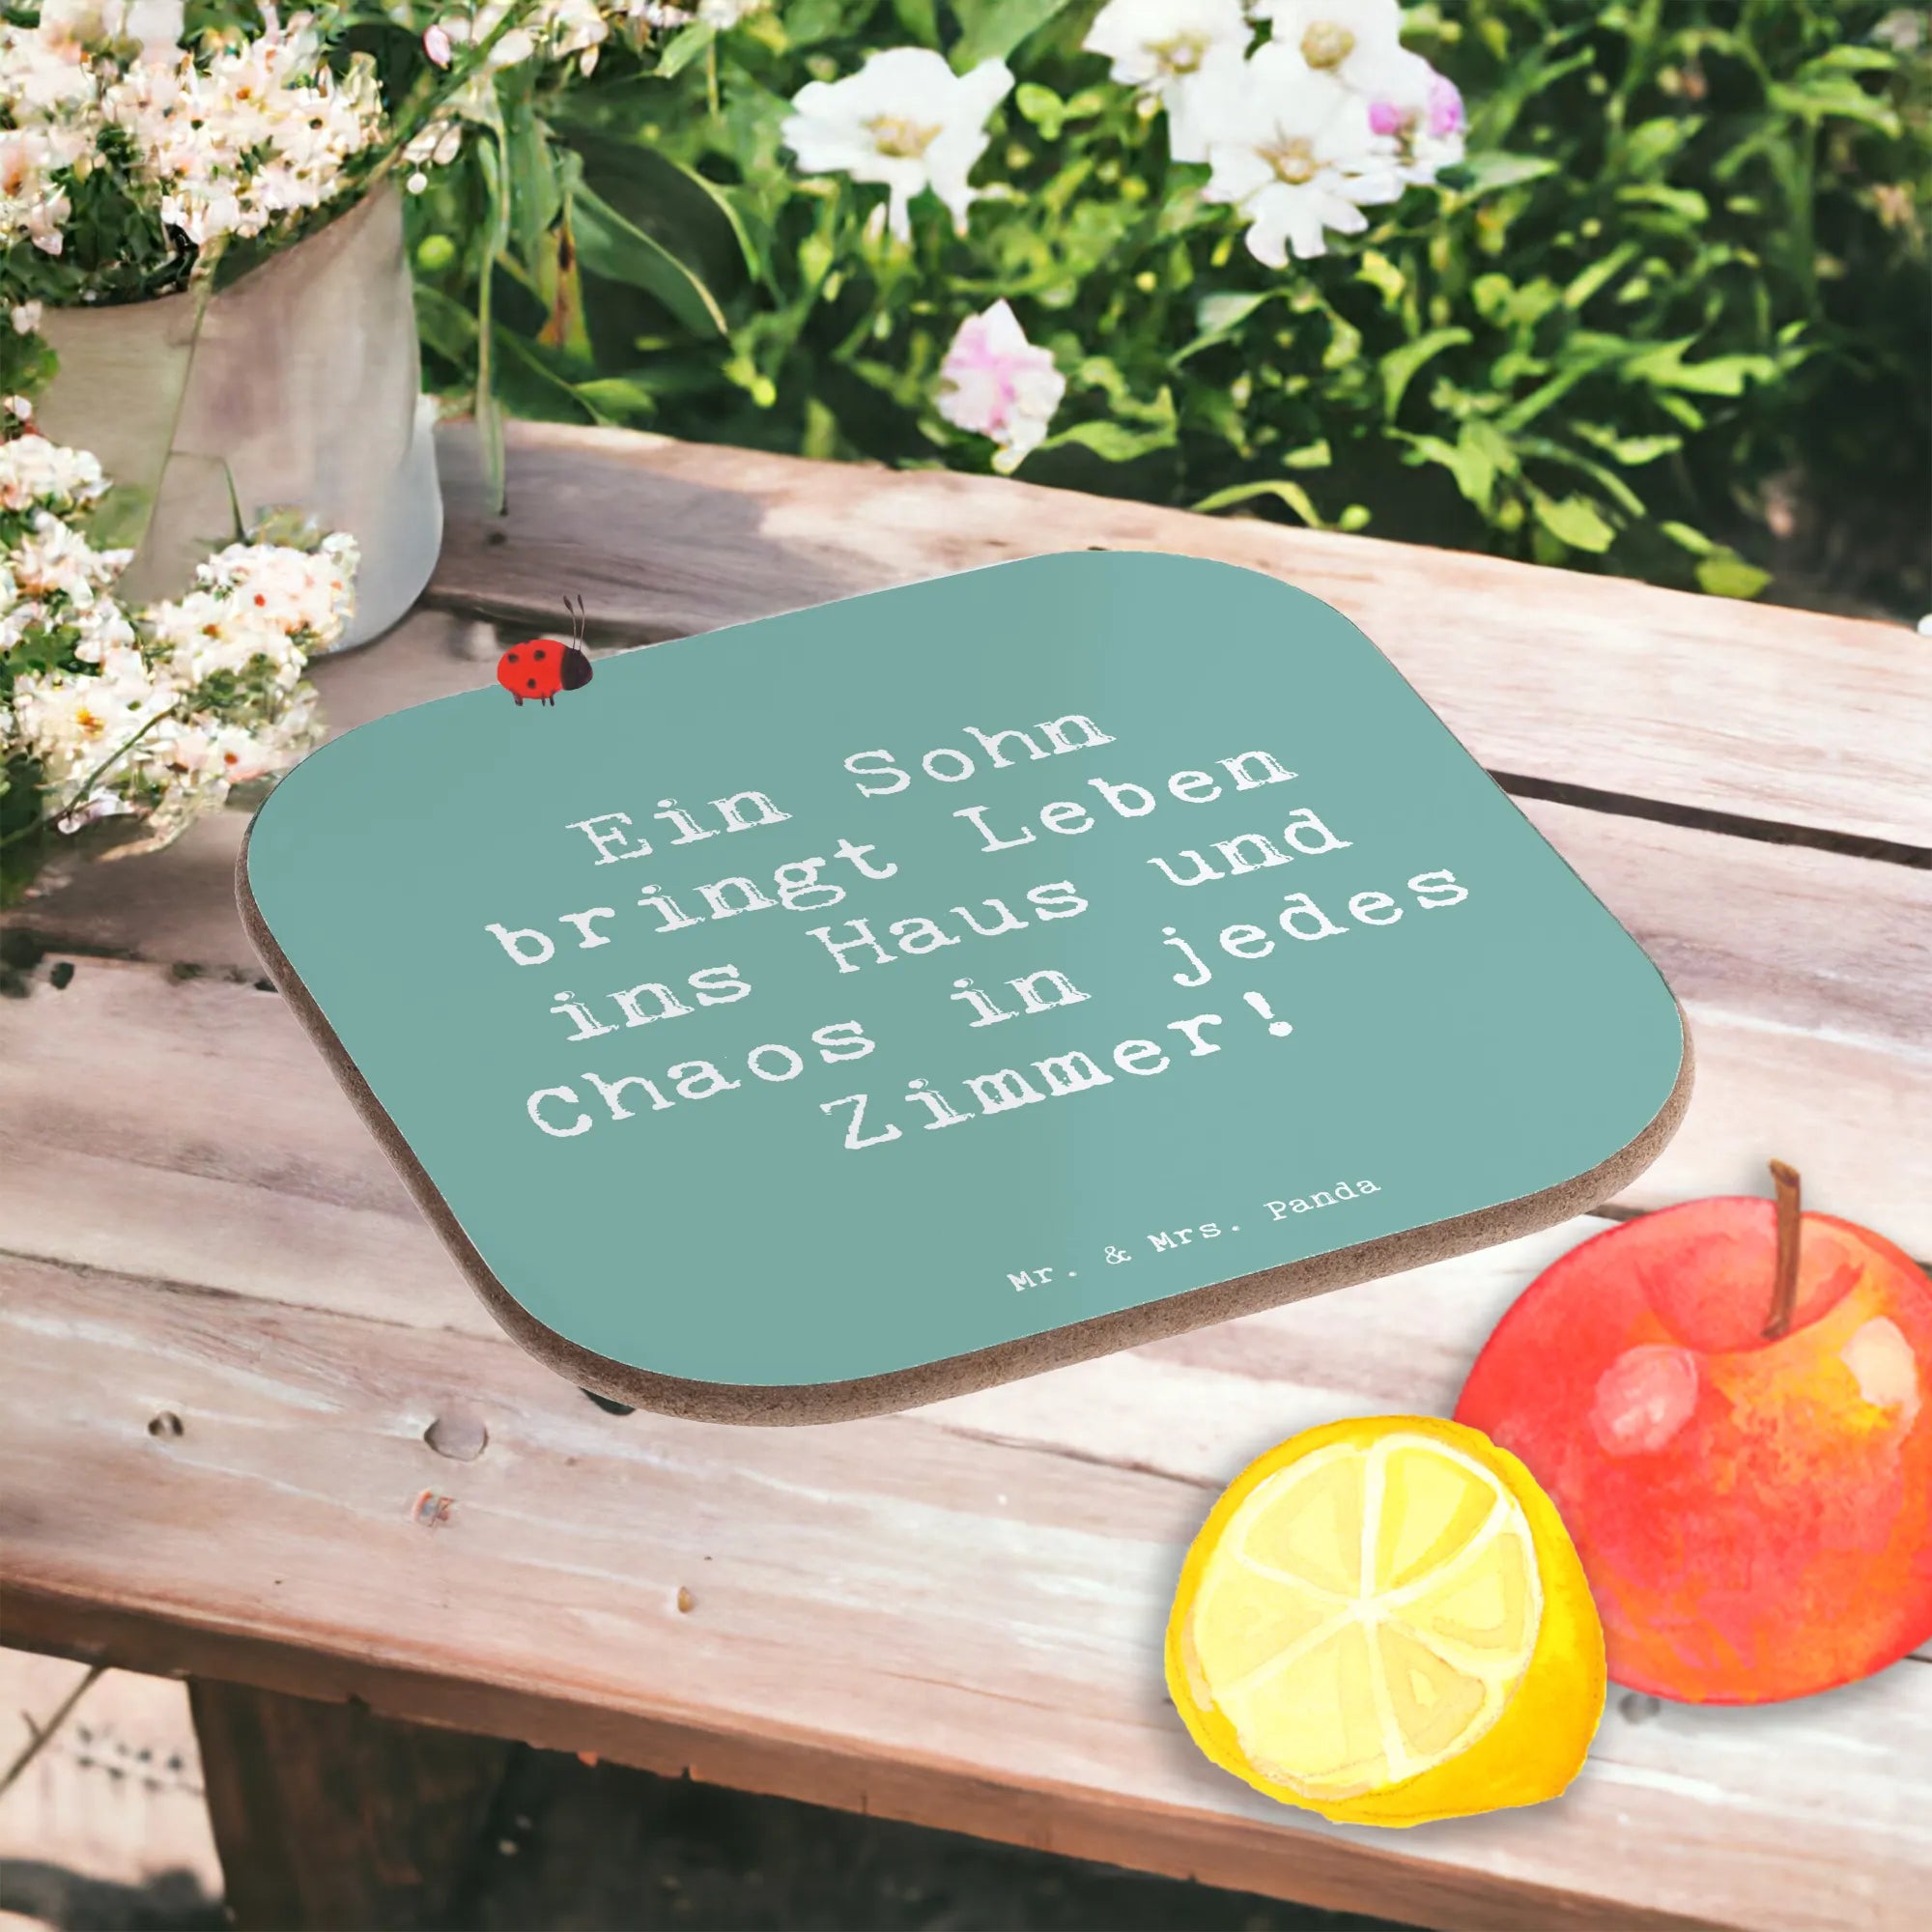 Ein Sohn
bringt Leben
ins Haus und
Chaos in jedes
Zimmer!
Mr. & Mrs. Panda